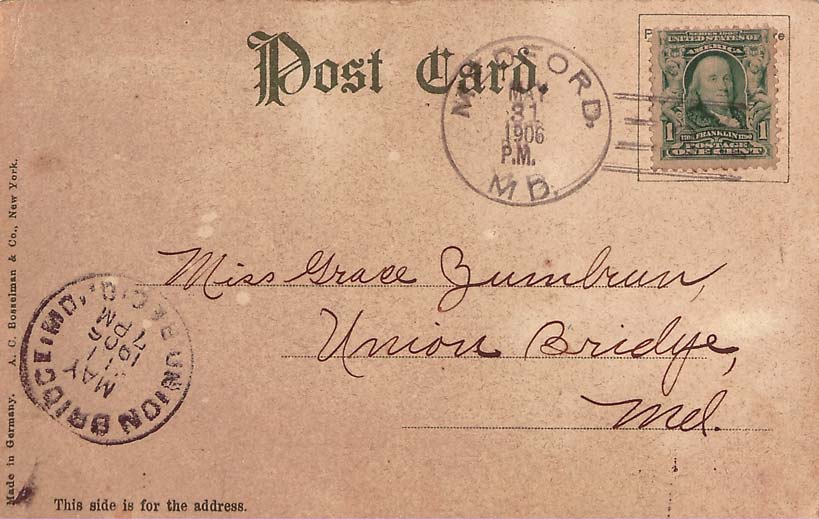 Post Card.
MEDFORD,
MAY
31
1906
P.M.
MD.
SERIES 1902
UNITED STATES OF
AMERICA
1 FRANKLIN 1
POSTAGE
ONE CENT
Miss Grace Zumbrun,
Union Bridge,
Md.
UNION BRIDGE, MD.
REC'D.
MAY
1906
7 PM
Made in Germany. A. C. Bosselman & Co., New York.
This side is for the address.